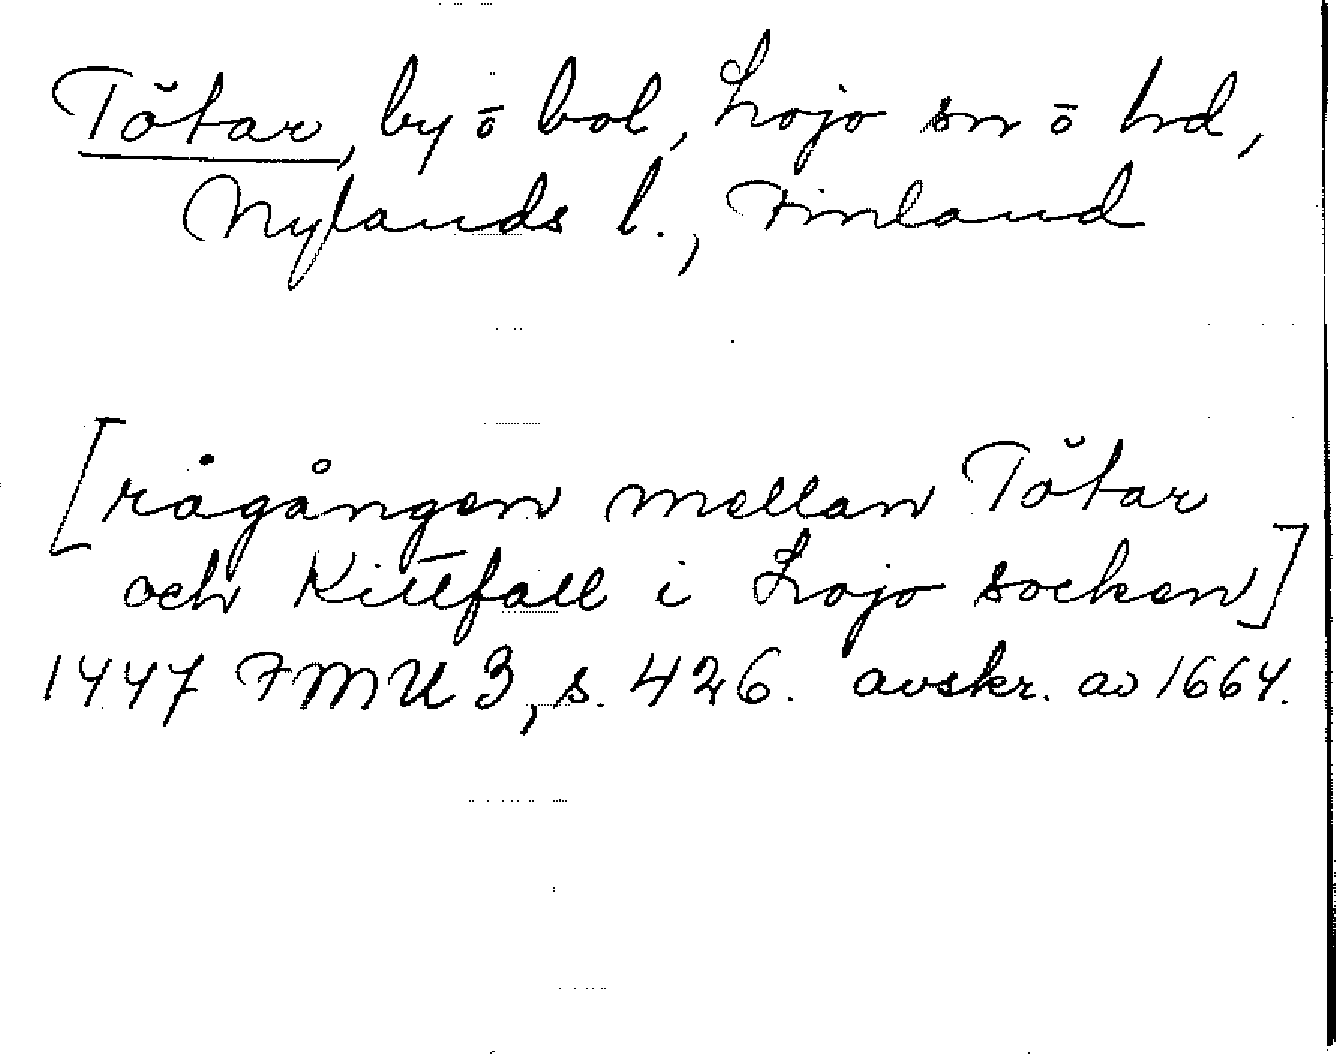 Tötar, by ō bol, Lojo sn ō hd,
Nylands l., Finland
[rågången mellan Tötar
och Kittfall i Lojo socken]
1447 FMU 3, s. 426. avskr. av 1664.